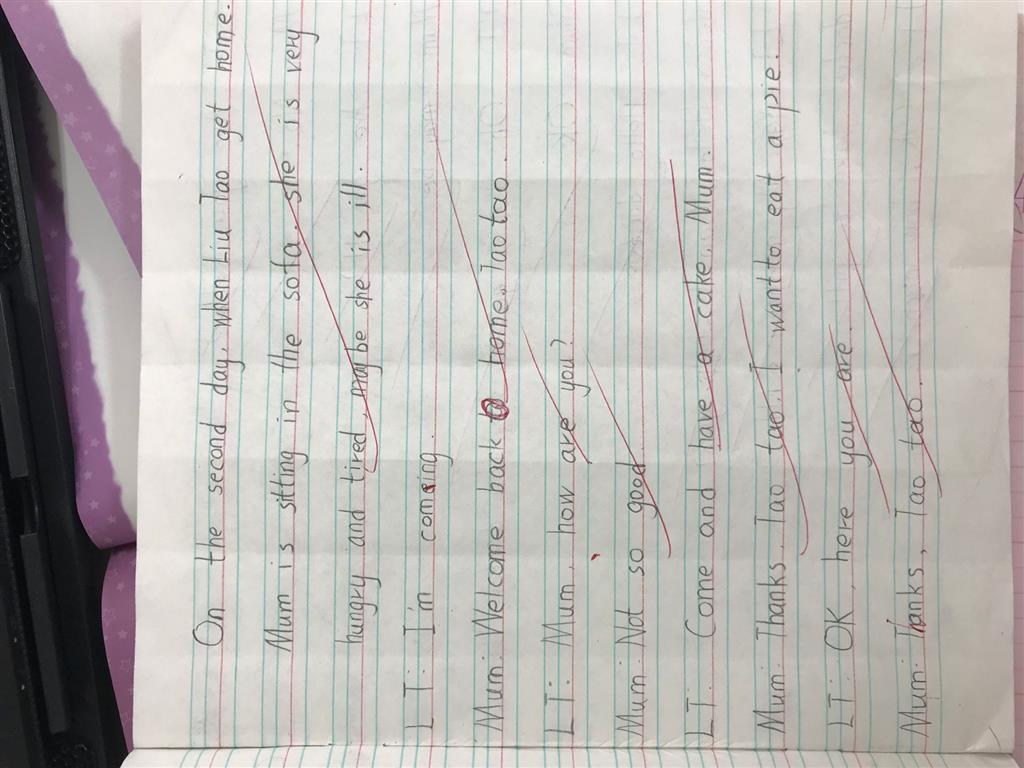 On the second day, when Liu Tao get home.
Mum is sitting in the sofa. she is very
hungry and tired, maybe she is ill.
LT: I'm coming.
Mum: Welcome back home, Tao tao.
LT: Mum, how are you?
Mum: Not so good.
LT: Come and have a cake, Mum.
Mum: Thanks, Tao tao. I want to eat a pie.
LT: OK, here you are.
Mum: Thanks, Tao tao.